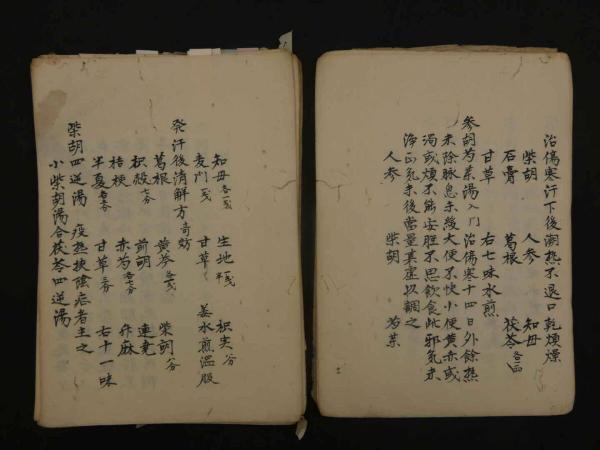 治傷寒汗下後潮熱不退口乾煩燥
柴胡 人参 知母
石膏 葛根 茯苓各一両
甘草 右七味水煎
参胡芍薬湯入门 治傷寒十四日外餘熱
未除脉息未緩大便不快小便黄赤或
渴或煩不能安睡不思飲食此邪氣未
淨正氣未復當量其虚以調之
人参 柴胡 芍薬
知母各一戔 生地一戔半 枳実八分
麦門一戔 甘草 姜水煎温服
発汗後清解方
葛根 黄芩各一戔 柴胡八分
枳殻七分 前胡 連壳
桔梗 赤芍各七分 升麻
半夏各五分 甘草三分 右十一味
柴胡四逆湯 疫熱挟陰症者主之
小柴胡湯合茯苓四逆湯